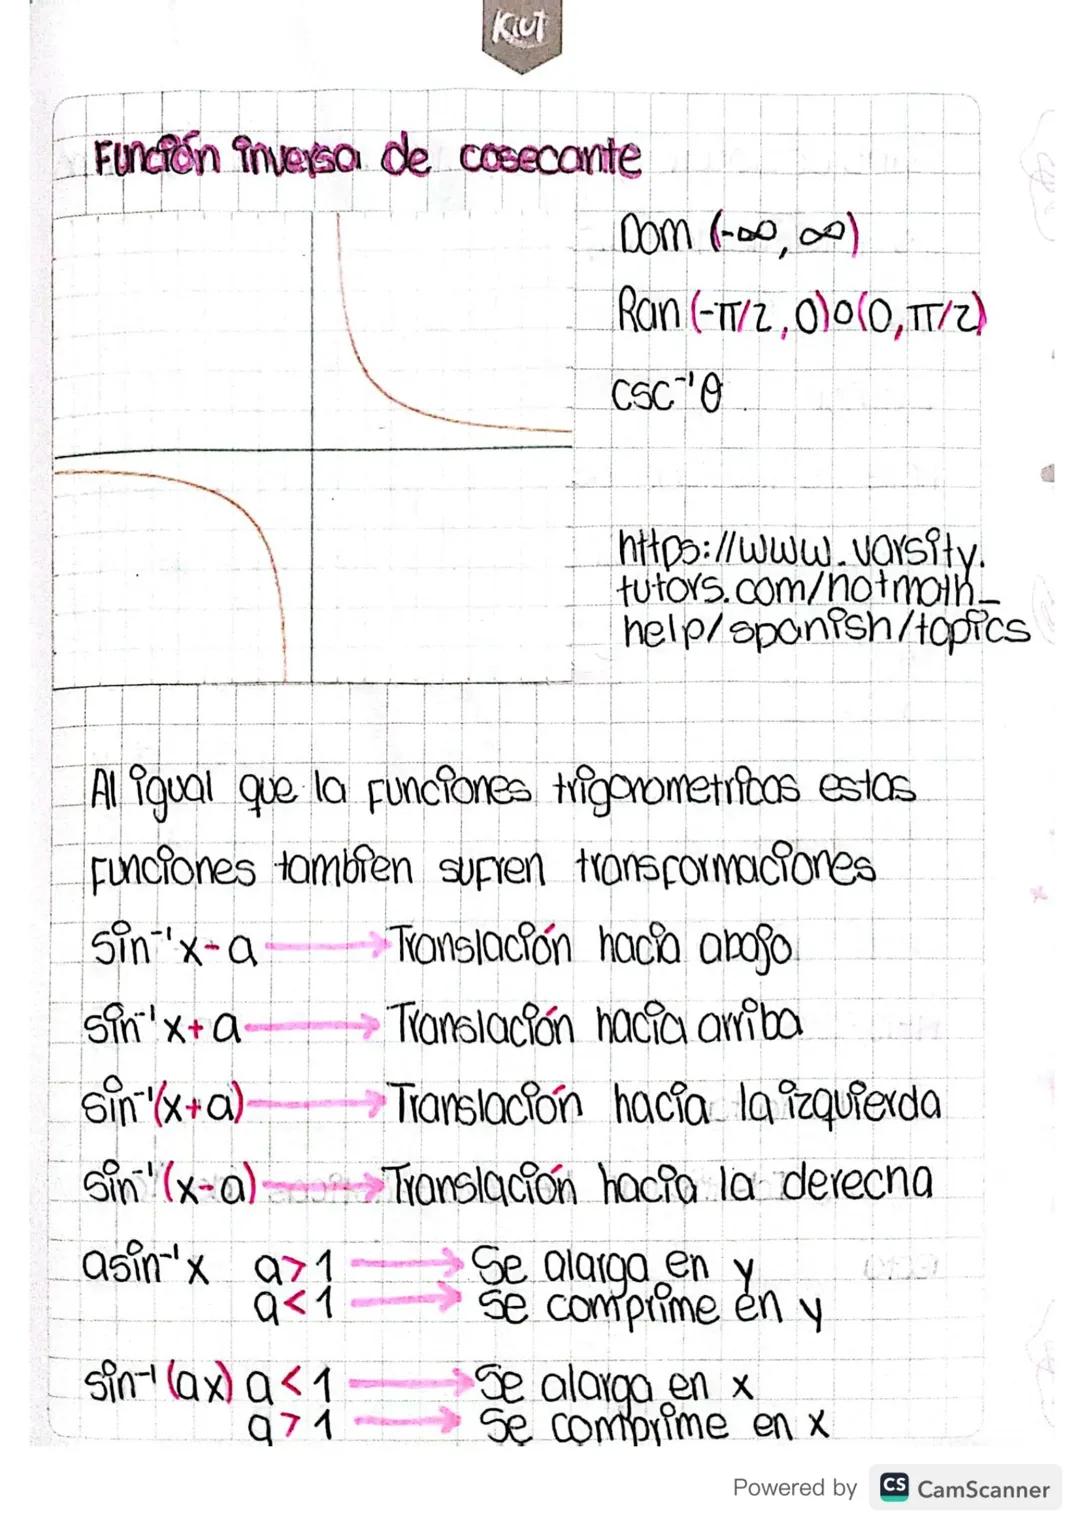 Kiut
Función inversa de cosecante
Dom (-∞, ∞)
Ran (-π/2, 0) o (0, π/2)
csc⁻¹θ
https://www.varsity.
tutors.com/hotmath_
help/spanish/topics
Al igual que la funciones trigonometricas estas
funciones tambien sufren transformaciones
sin⁻¹x-a → Translación hacia abajo
sin⁻¹x+a → Translación hacia arriba
sin⁻¹(x+a) → Translación hacia la izquierda
sin⁻¹(x-a) → Translación hacia la derecha
asin⁻¹x a>1 → Se alarga en y
a<1 → se comprime en y
sin⁻¹(ax) a<1 → Se alarga en x
a>1 → Se comprime en x
Powered by CS CamScanner